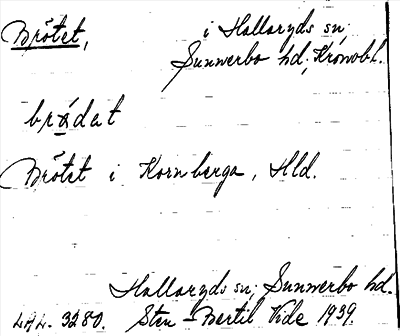 Brötet, i Hallaryds sn,
Sunnerbo hd, Kronobl.
brǿdat
Brötet i Kornberga, Hld.
Hallaryds sn, Sunnerbo hd.
LAL. 3280. Sten-Bertil Vide 1939.